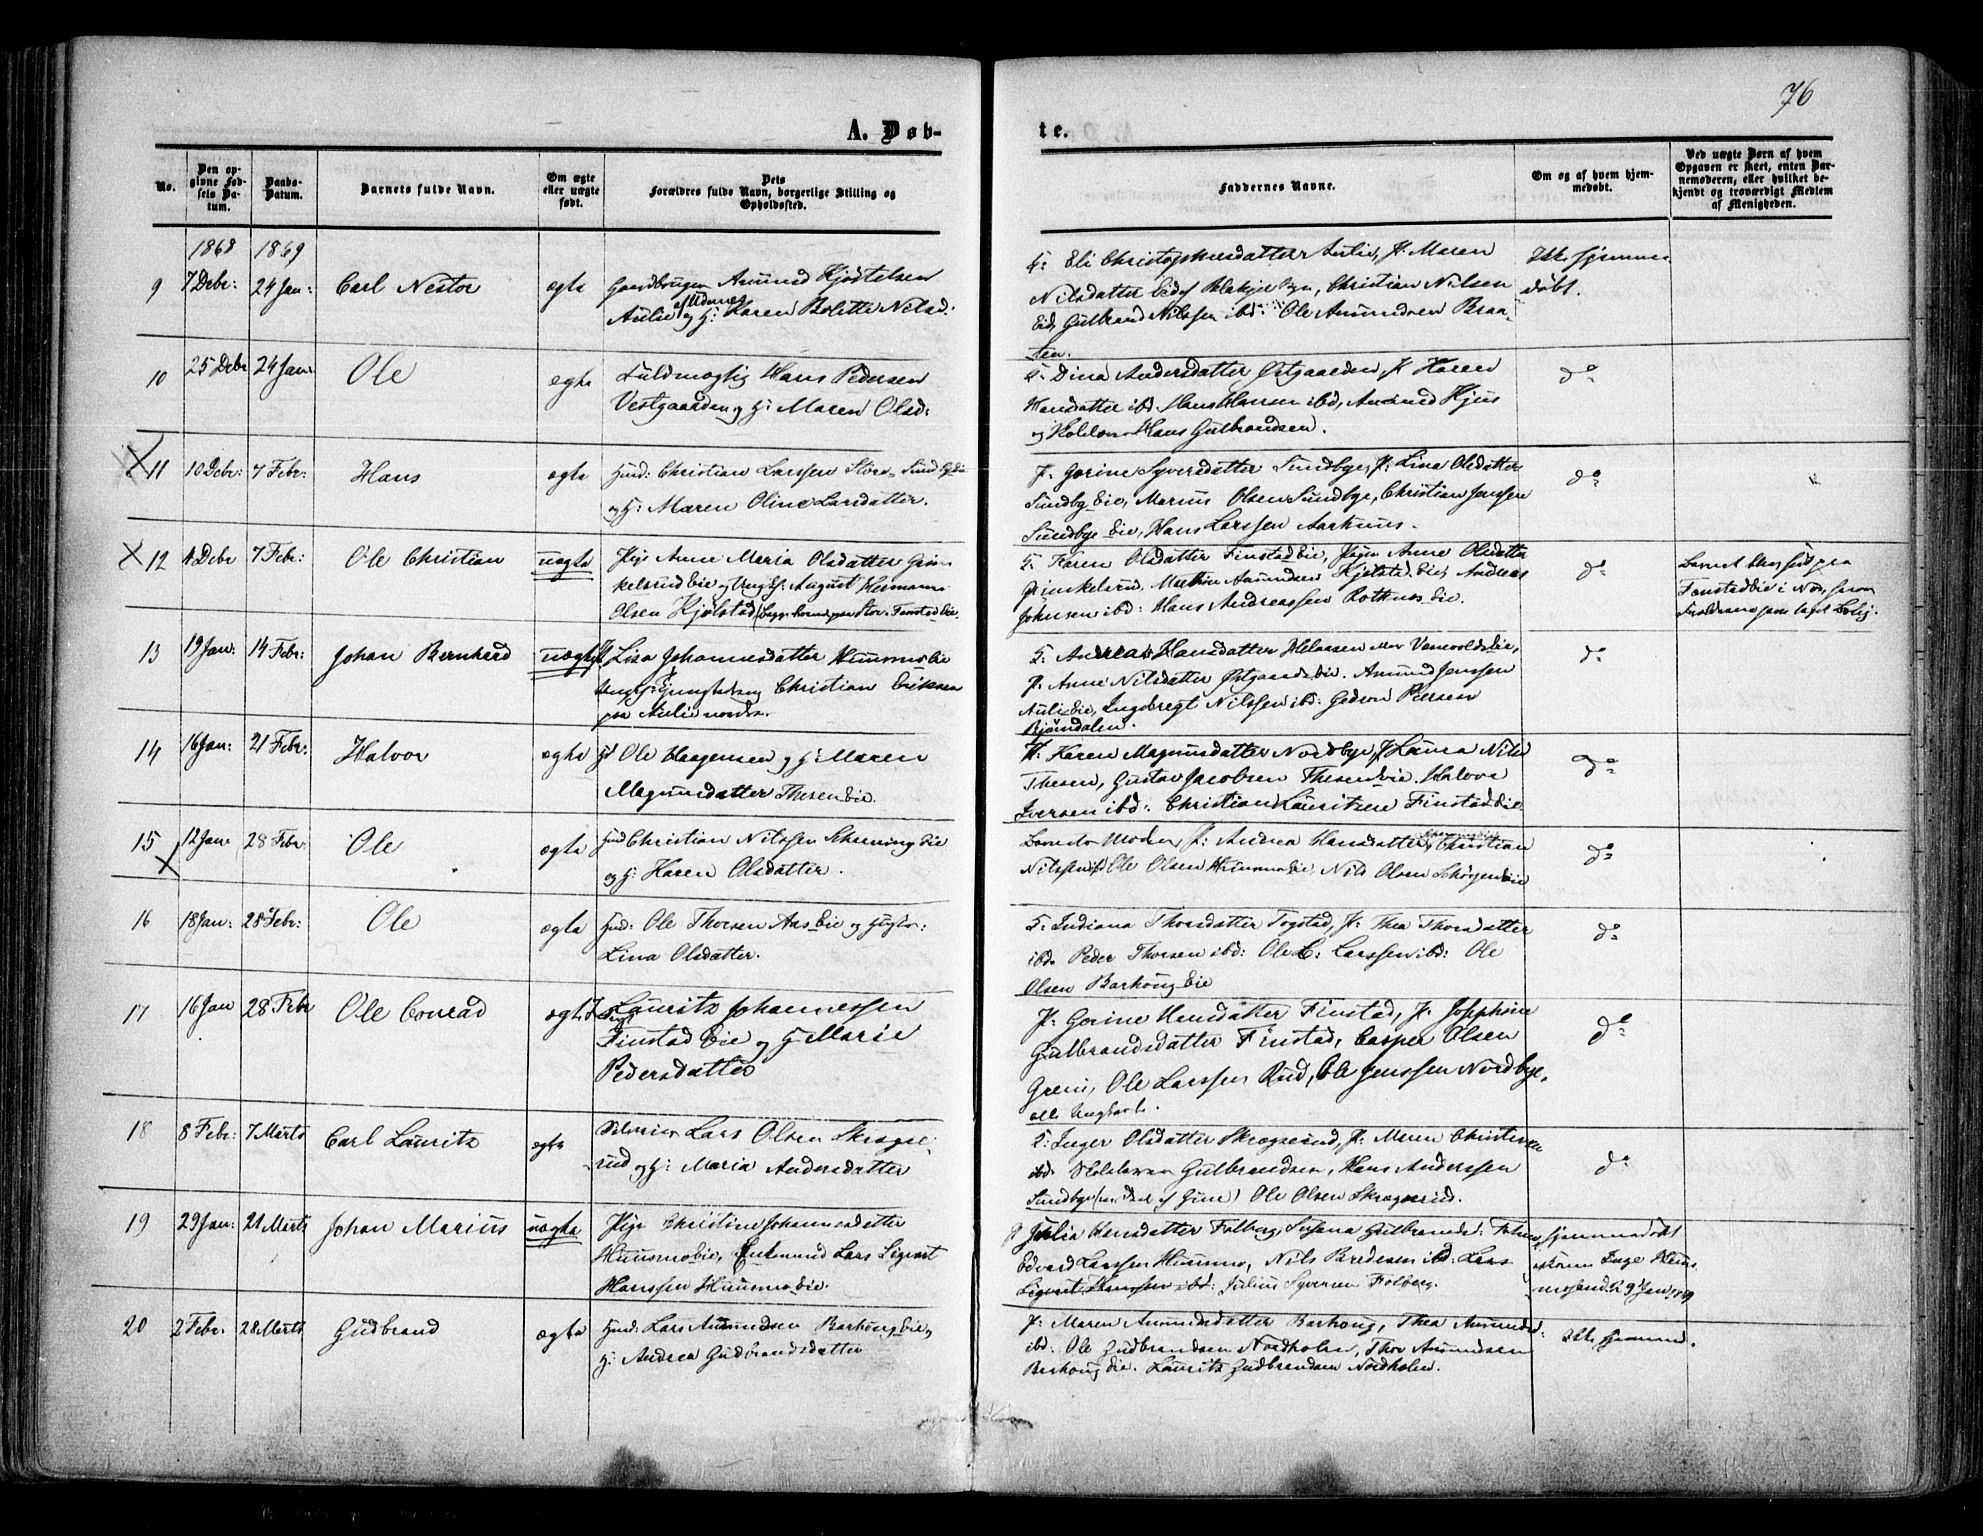 76
A. Døb-
te.
No.
Den opgivne Fødsels Datum.
Daabs-Datum.
Barnets fulde Navn.
Om ægte eller uægte født.
Dets Forældres fulde Navn, borgerlige Stilling og Opholdssted.
Faddernes Navne.
Om og af hvem hjemmedøbt.
Ved uægte Børn af hvem Opgaven er skeet, enten Barnemoderen, eller hvilket bekjendt og troværdigt Medlem af Menigheden.
1868 1869
9 7 Debr: 24 Jan: Carl Nestor ægta Gaardbruger Amund Kjøstelsen
Aulie og H: Karen Bolette Nilsd.
G: Eli Christophersdatter Aulie, P: Maren
Nilsdatter Eid, Christian Nilsen
Eid, Gulbrand Nilssen ibd: Ole Amundsen Braa-
ten.
Ikke hjemme
døbt.
10 25 Debr 24 Jan: Ole ægta Fuldmægtig Hans Pedersen
Vestgaarden og H: Maren Olsd:
G: Dina Andersdatter Østgaarden, P: Karen
Hansdatter ibd. Hans Hansen ibd, Amund Kjus
og Hans Gulbrandsen.
do
11 10 Debr: 7 Febr: Hans ægta Hmd: Christian Larssen Store-Sundbyeie
og H: Maren Oline Larsdatter.
P: Gorine Syversdatter Sundbye, P: Lina Olsdatter
Sundby Eie, Marius Olsen Sundbye, Christian Jensen
Sundbye Eie, Hans Larssen Aarhuus.
do
12 4 Debr 7 Febr: Ole Christian uægta Pige Anne Maria Olsdatter Grin-
kelsrud Eie og Ungk: August Hermann
Olsen Kjølstad
G: Karen Olsdatter Finstad Eie, Pigen Anne Olsdatter
Grinkelsrud, Amundsen Kjølstad Eie, Andreas
Johnsen ibd: Hans Andreassen Rotknes Eie.
do
13 19 Jan: 14 Febr: Johan Bernhard uægta P. Lisa Johannesdatter Huusmoeie
og Christian Eriksen
paa Aulie nordre.
G: Andrea Hansdatter
P: Anne Nilsdatter Østgaardseie. Amund Jenssen
Aulie Eie, Ingebregt Nilssen ibd: Gedeon Persen
Bjøndalen.
do
14 16 Jan: 21 Febr: Halvor ægta Ole Haagensen og H: Maren
Magnusdatter Thesen Eie.
H: Karen Magnusdatter Nordbye, P: Laura Nilsd
Thesen, Gustav Jacobsen Thesen Eie. Halvor
Iversen ibd: Christian Lauritzen Finstad Eie
do
15 12 Jan. 28 Febr. Ole ægta Hmd Christian Nilssen Skrening Eie
og H: Karen Olsdatter.
Barnets Moder, P: Andrea Hansdatter, Christian
Nilssen, Ole Olsen Huusmo Eie, Nils Olsen
do
16 18 Jan: 28 Febr: Ole ægta Hmd: Ole Thorsen Aas Eie og Hustr:
Lina Olsdatter.
G: Indiana Thorsdatter Togstad, P: Thea Thorsdatter
ibd. Peder Thorsen ibd: Ole C: Larssen ibd: Ole
Olsen Barhoug Eie
do
17 16 Jan 28 Febr Ole Conrad ægta Lauritz Johannessen
Finstad Eie og H Marie
Pedersdatter
P: Gorine Hansdatter Finstad, P: Josephine
Gulbrandsdatter Finstad, Casper Olsen
Greni, Ole Larssen Rud, Ole Jenssen Nordbye.
alle Ungkarle.
do
18 8 Febr: 7 Marts Carl Lauritz ægta Selveier Lars Olsen Skragse-
rud og H: Maria Andersdatter
G: Inger Olsdatter Skragserud, P: Maren
ibd. Gulbrandsen, Hans Anderssen
Sundbye Ole Olsen Skragserud.
do
19 29 Jan: 21 Marts Johan Marius uægta Pige Christine Johannesdatter
Huusmoeie, Enkemand Lars Sigvart
Hanssen Huusmoeie.
P Julia Hansdatter Folberg, Susana Gulbrandsd: Folberg,
Edvard Larssen Huusmo, Nils Bredesen ibd: Lars
Sigvart Hanssen ibd: Julius Syversen Folberg.
hjemmedøbt
Inge Huus
moeie 29 Jan 1869
20 2 Febr: 28 Marts Gudbrand ægta Hmd: Lars Amundsen Barhoug Eie,
H: Andrea Gudbrandsdatter
P: Maren Amundsdatter Barhoug, Thea Amundsd:
ibd: Ole Gudbrandsen Nordholen, Thor Amundsen
Barhoug Eie. Lauritz Gudbrandsen Nordholen.
Ikke hjemmed.